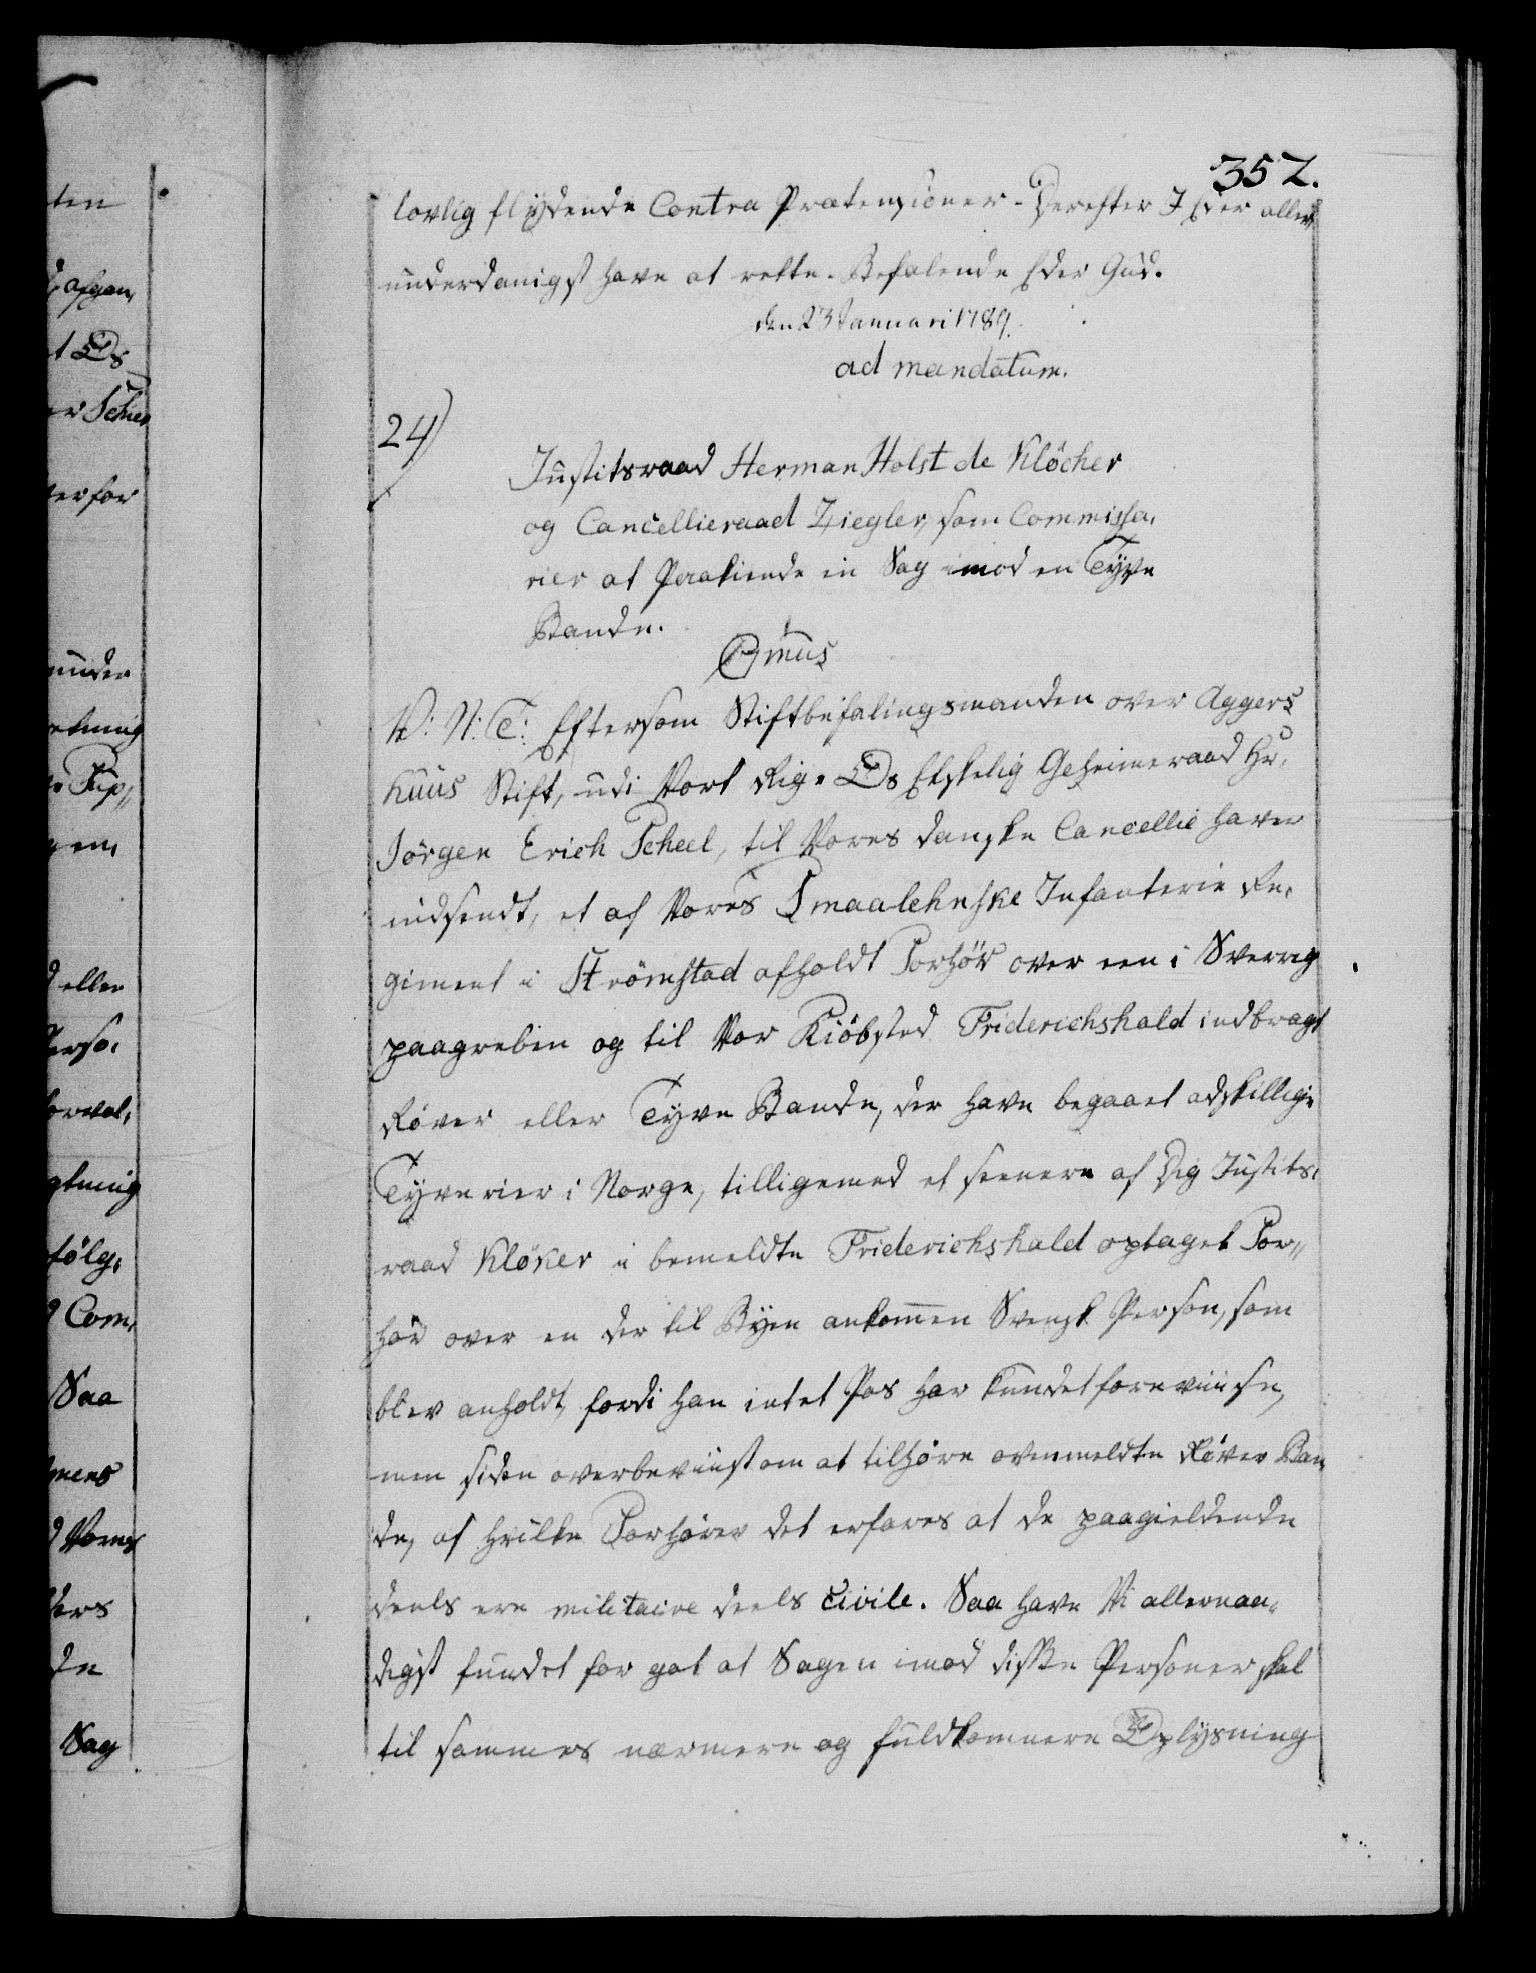 352.
lovlig flydende Contra Prætensioner. Derefter I Eder aller
underdanigst have at rette. Befalende Eder Gud.
den 23 Januari 1789.
ad mandatum.
24)
Justitsraad Herman Holst de Klöcker
og Cancellieraad Ziegler, som Commissa,
rier at paakiende en Sag imod en Tyve
Bande.
V: N: T: Eftersom Stiftbefalingsmanden over Aggers
huus Stift, udi Vort Rige Os Elskelig Geheimeraad Hr.
Jörgen Erich Scheel, til Vores danske Cancellie haver
indsendt, et af Vores Smaalehnske Infanterie Re,
giment i Strömstad afholdt Forhör over een i Sverrig
paagreben og til Vor Kiöbsted Friderichshald indbragt
Röver eller Tyve Bande, der have begaaet adskillige
Tyverier i Norge, tilligemed et seenere af Dig Justits,
raad Klöker i bemeldte Friderichshald optaget For,,
hör over en der til Byen ankommen Svensk Person, som
blev anholdt, fordi han intet Pas har kundet foreviise,
men siden overbeviist om at tilhöre ovenmeldte Röver Ban
de, af hvilke Forhörer det erfares at de paagieldende
deels ere militaire deels civile. Saa have Vi allernaa,
digst fundet for got at Sagen imod disse Personer skal
til sammes nærmere og fuldkomnere Oplysning
ten
afgan,
t Os
er
erfor
under
retning
gen,
d eller
Perso,
forval,
gtning
fölg,
d Com,
Saa
d Vores
ders
de
Sag